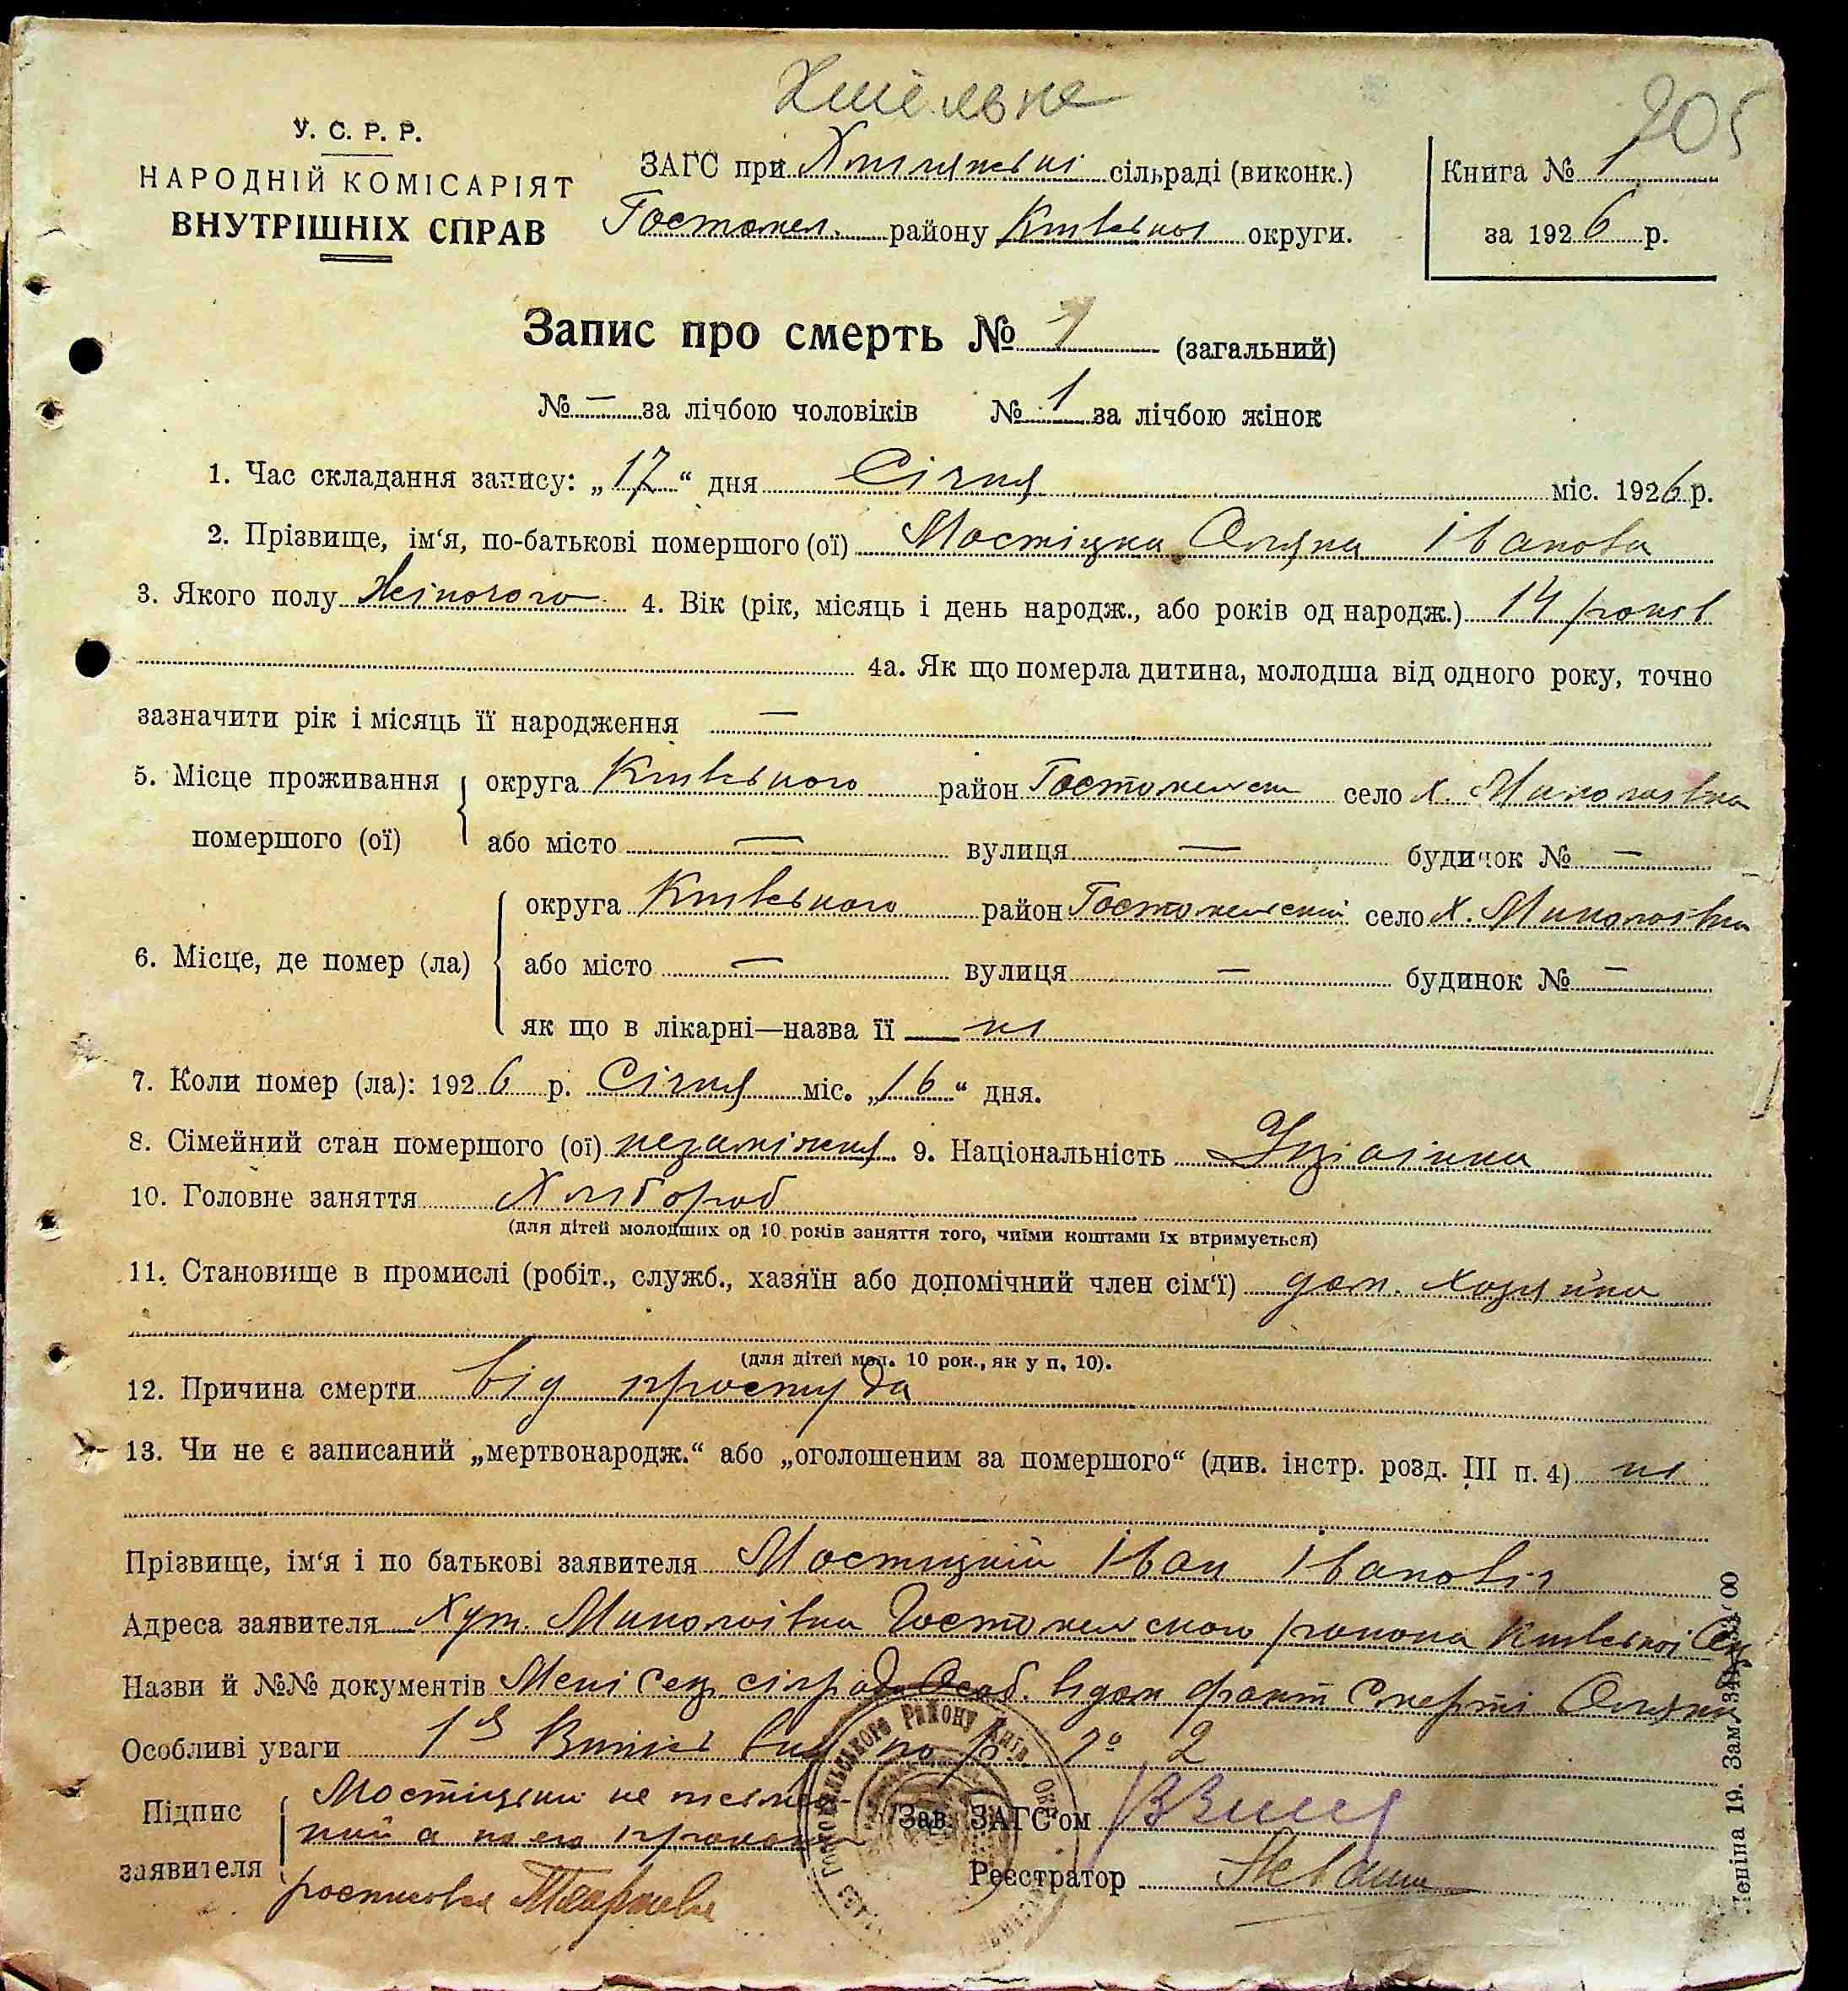 Хмільне
205
У. С. Р. Р.
НАРОДНІЙ КОМІСАРІЯТ
ВНУТРІШНІХ СПРАВ
ЗАГС при сільраді (виконк.)
Гостомел. району Київської округи.
Книга № 1
за 1926 р.
Запис про смерть № 1 (загальний)
№ — за лічбою чоловіків № 1 за лічбою жінок
1. Час складання запису: „17“ дня Січня міс. 1926 р.
2. Прізвище, ім‘я, по-батькові помершого (ої) Мостіцка Оляна Іванова
3. Якого полу Жіночого 4. Вік (рік, місяць і день народж., або років од народж.) 14 років
4а. Як що померла дитина, молодша від одного року, точно
зазначити рік і місяць її народження —
5. Місце проживання помершого (ої) округа Київського район Гостомельск село х. Миколаівка
або місто — вулиця — будинок № —
6. Місце, де помер (ла) округа Київського район Гостомельский село х. Миколаівка
або місто — вулиця — будинок № —
як що в лікарні—назва її — ні
7. Коли помер (ла): 1926 р. Січня міс. „16“ дня.
8. Сімейний стан помершого (ої) незаміжня 9. Національність
10. Головне заняття Хлібороб
(для дітей молодших од 10 років заняття того, чиїми коштами їх втримується)
11. Становище в промислі (робіт., служб., хазяїн або допомічний член сім‘ї) доп. хозяина
(для дітей мол. 10 рок., як у п. 10).
12. Причина смерти від простуда
13. Чи не є записаний „мертвонародж.“ або „оголошеним за помершого“ (див. інстр. розд. III п. 4) ні
Прізвище, ім‘я і по батькові заявителя Мостицкий Іван Іванович
Адреса заявителя Хут. Миколаівка Гостомельского району Київської Окр
Назви й №№ документів факт смерті Оляни
Особливі уваги № 2
Підпис заявителя Мостицкий не письмен-
ний а по его
росписовся
Зав. ЗАГС'ом
Реєстратор
Гостомельського Району Київ. Окр.
Леніна 19. Зам.